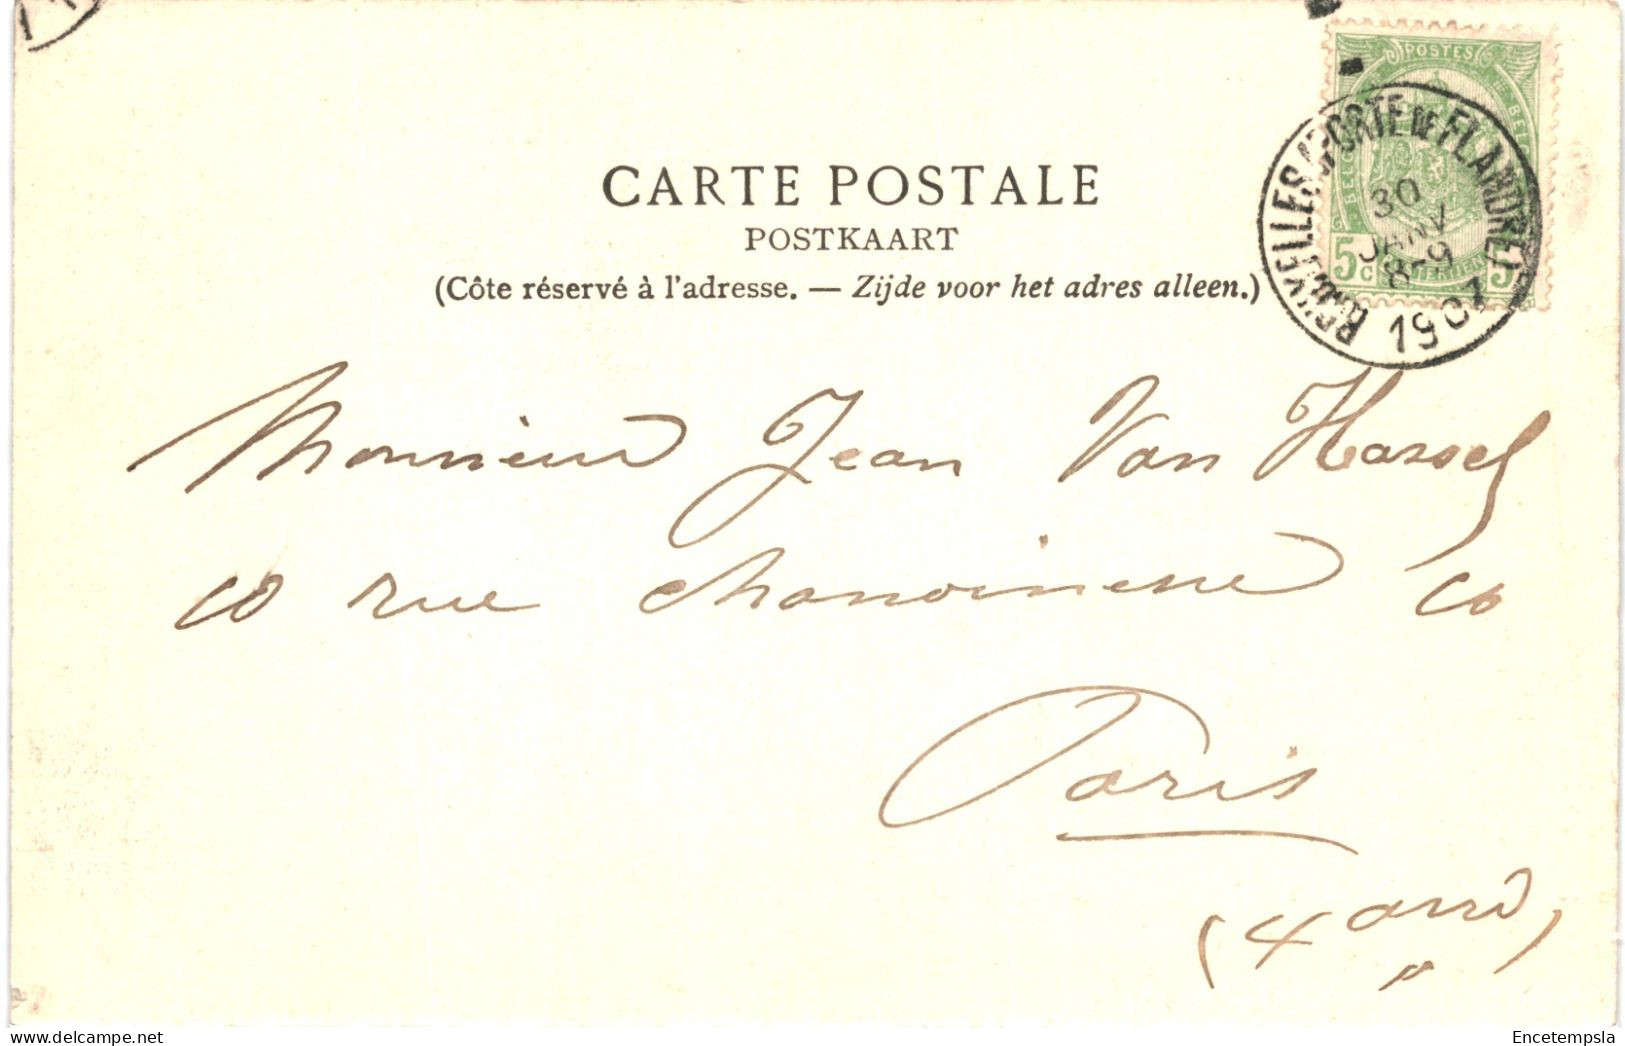 POSTES
BELGIQUE
5 c
5 c
BRUXELLES (PORTE DE FLANDRE)
30
JANV
8-9
1907
CARTE POSTALE
POSTKAART
(Côte réservé à l'adresse. — Zijde voor het adres alleen.)
Monsieur Jean Van Hassel
10 rue Chanoinesse 10
Paris
(4 arrd)
Encetempsla